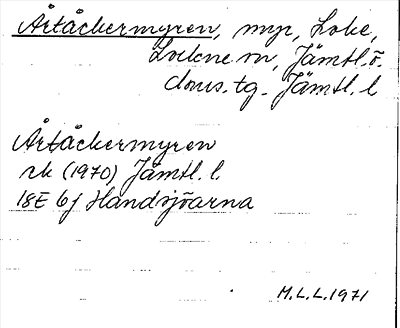 Ärtåckermyren, myr, Lobe,
Lockne sn, Jämtl. ö.
doms. tg. Jämtl. l
Ärtåckermyren
rk (1970) Jämtl. l.
18E 6j Handsjöarna
M.L.L. 1971